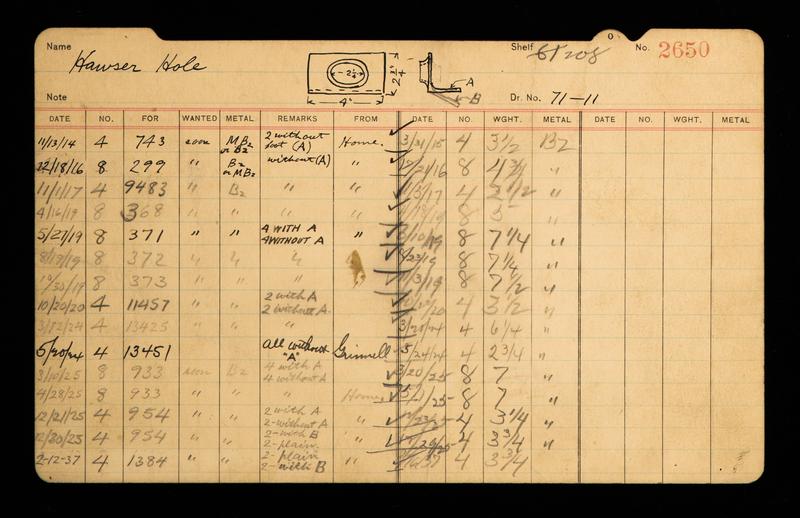 Name Hawser Hole
Shelf 61208 No. 2650
- 2¼ - 2¼" 4" A B
Note Dr. No. 71-11
DATE NO. FOR WANTED METAL REMARKS FROM DATE NO. WGHT. METAL DATE NO. WGHT. METAL
11/13/14 4 743 soon MBz or Bz 2 without foot (A) Home. 3/31/15 4 3½ Bz
12/18/16 8 299 " Bz or MBz without (A) " 12/21/16 8 4¾ "
11/1/17 4 9483 " Bz " " 4 2½ "
4/16/19 8 368 " " " " 8 5 "
5/27/19 8 371 " " 4 WITH A 4 WITHOUT A " 8 7¼ "
8/18/19 8 372 " " " 8/23/19 8 7¼ "
10/30/19 8 373 " " " 8 7½ "
10/20/20 4 11457 " " 2 with A 2 without A. 4 3½ "
3/12/24 4 13425 " " " 4 6¼ "
5/20/24 4 13451 all without "A" Grinnell 5/24/24 4 2¾ "
3/10/25 8 933 soon Bz 4 with A 4 without A 3/20/25 8 7 "
4/28/25 8 933 " " " Home 8 7 "
12/21/25 4 954 " " 2 with A 2-without A " 4 3¼ "
12/20/25 4 954 " " 2-with B 2-plain. " 4 3¾ "
2-12-37 4 1384 " " 2-plain 2-with B " 4 3¾